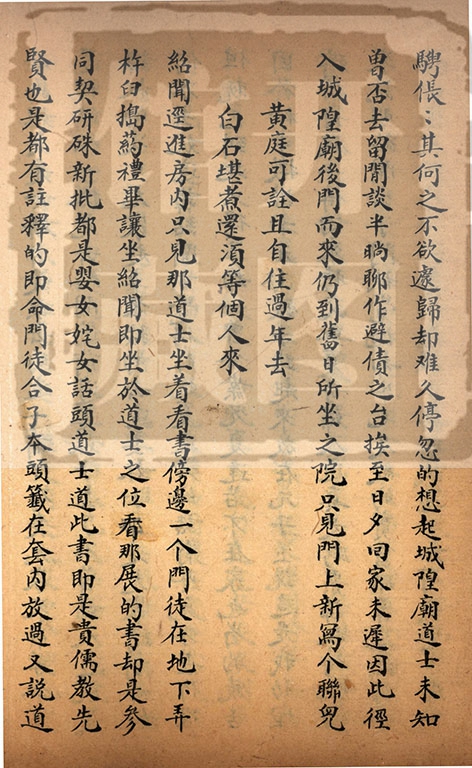 騁倀〻其何之不欲遽歸却难久停忽的想起城隍廟道士未知
曽否去留閒談半晌聊作避債之台挨至日夕回家未遲因此徑
入城隍廟後門而來仍到舊日所坐之院只見門上新寫个聯兒
黄庭可詮且自住過年去
白石堪煮還湏等個人來
紹聞逕進房内只見那道士坐着看書傍邊一个門徒在地下弄
杵臼搗葯禮畢讓坐紹聞即坐於道士之位看那展的書却是参
同契研硃新批都是嬰女姹女話頭道士道此書即是貴儒教先
賢也是都有註釋的即命門徒合了本頭籤在套内放過又説道